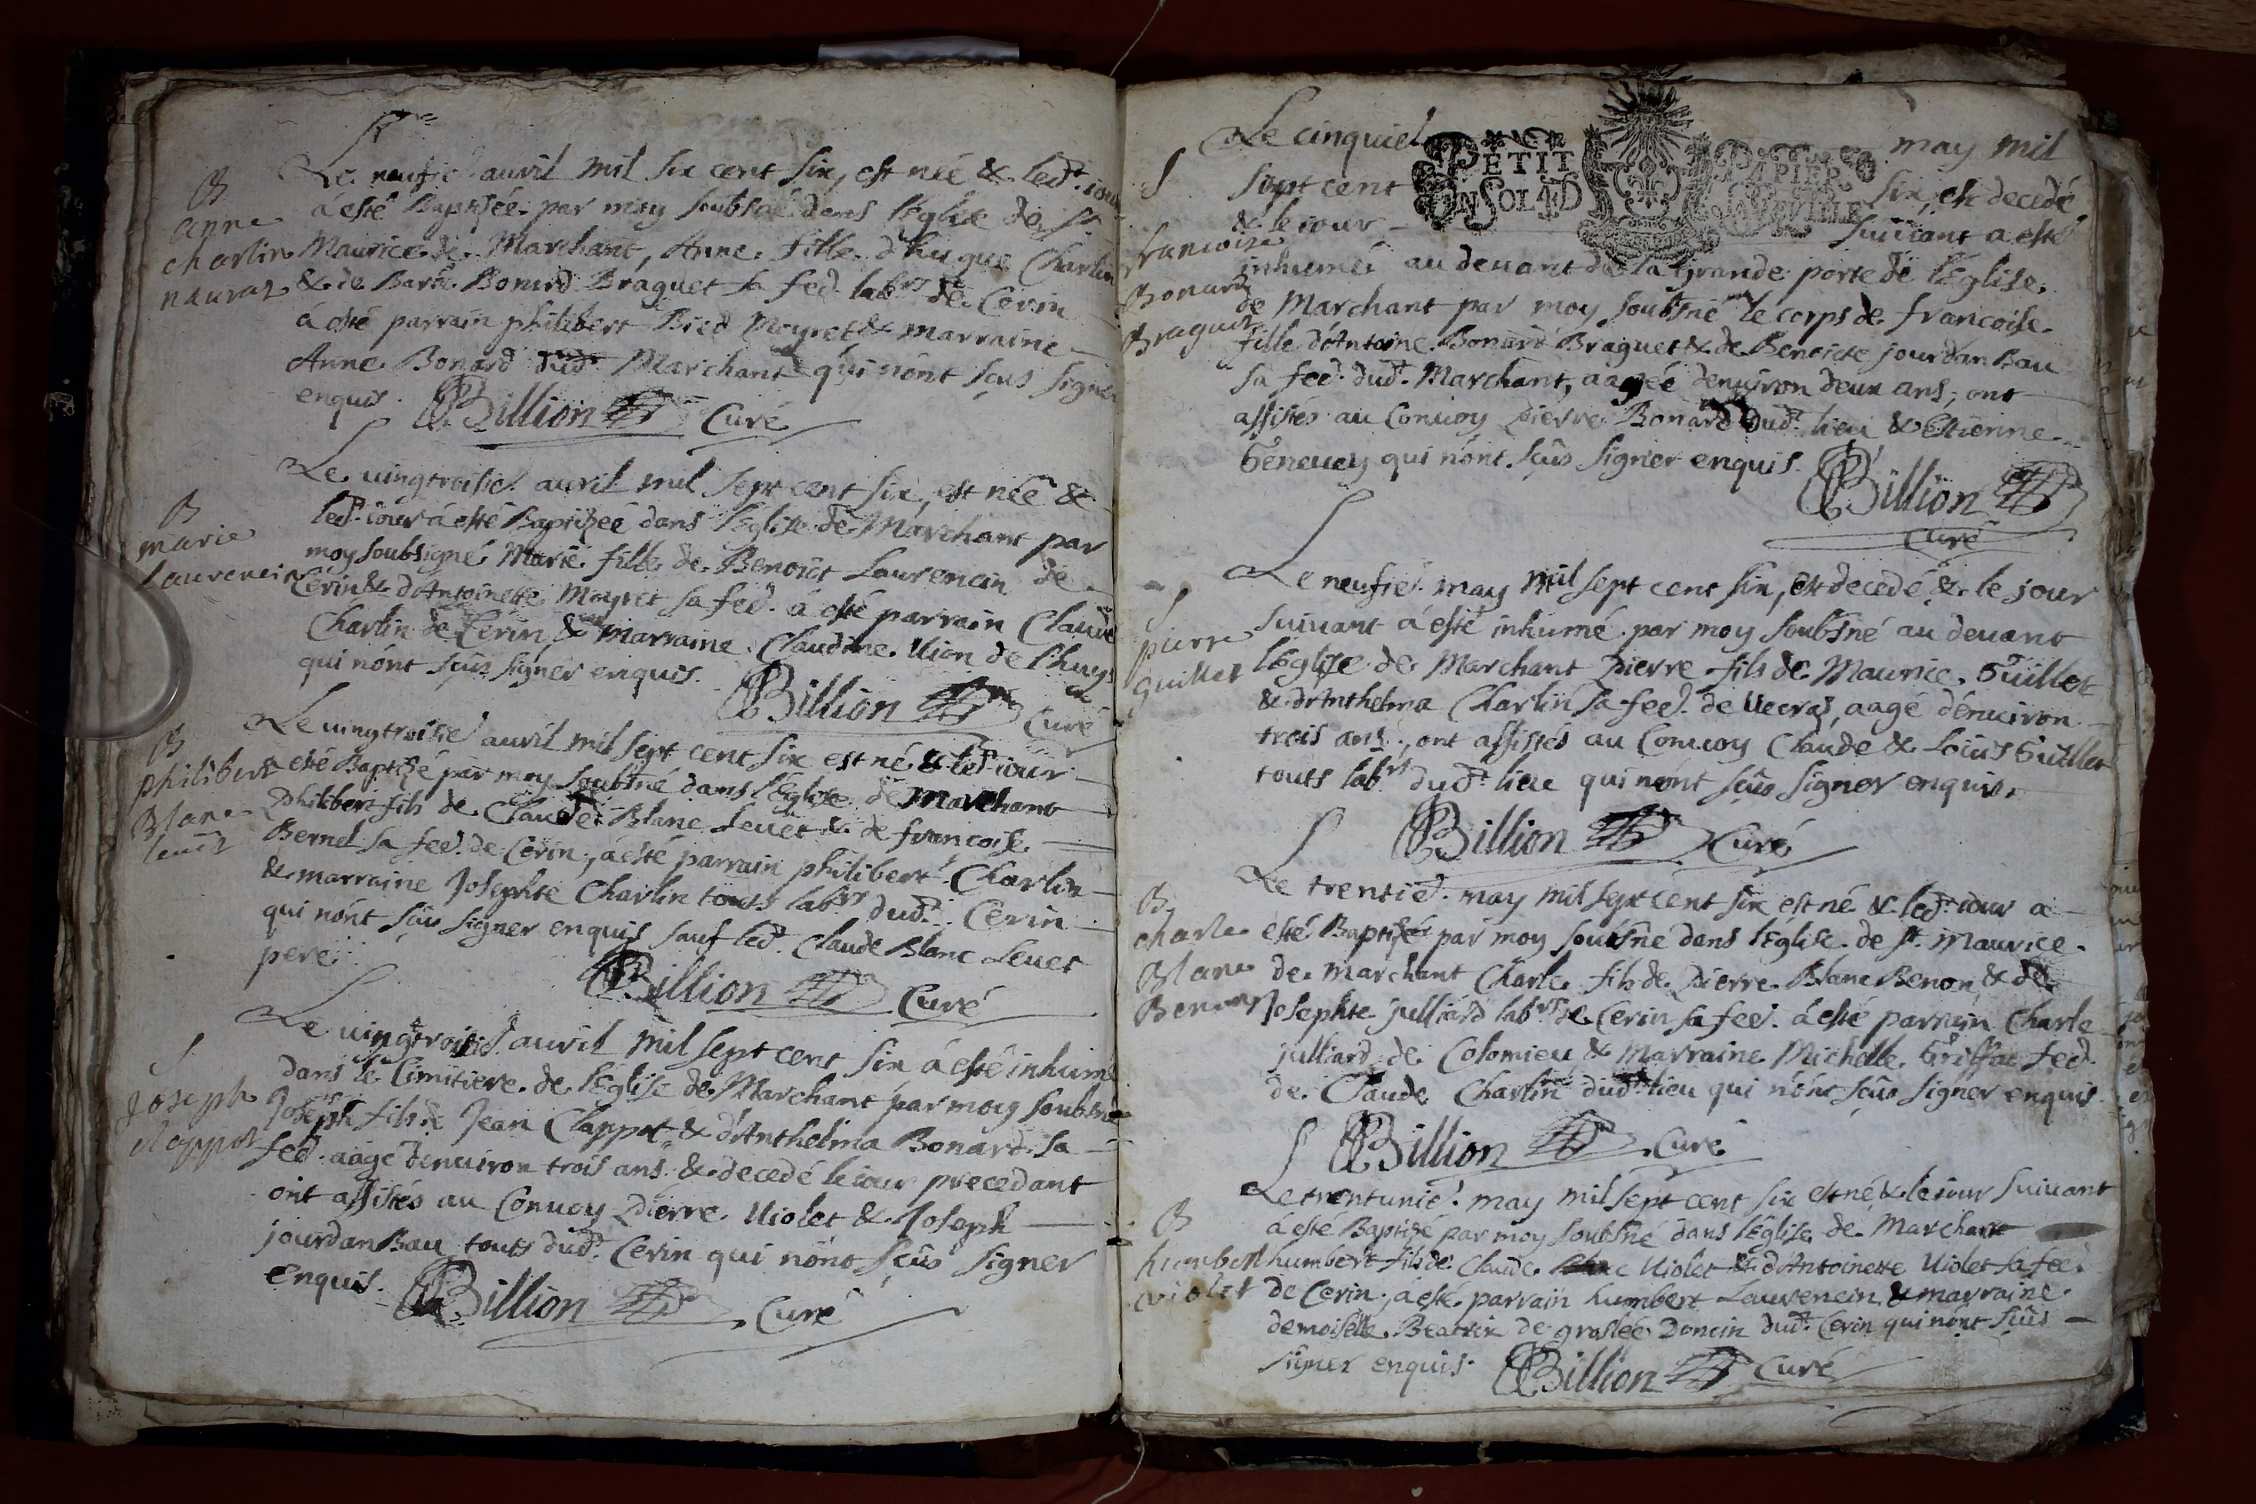 Le neufie auril mil six cent six, est née & led. iour
B
anne
charlin
nauraz
à esté Baptisée par moy soubsné dans l'Eglise de St.
Maurice de Marchant, Anne fille d'hugue Charlin
& de Barbe Bonard Braguet sa fee. labrs de Cerin
à esté parrain philibert Bied Moyret & marraine
Anne Bonard dud. Marchant qui nont sçus signer
enquis. Billion Curé
Le uingtroisie. auril mil sept cent six, est née &
B
marie
Laurencin
led. iour à esté Baptizeé dans l'Eglise de Marchant par
moy soubsigné Marie fille de Benoict Laurencin de
Cerin & d'Antoinette Moyret sa fee. à esté parrain Claude
Charlin de Cerin, & marraine Claudine Uion de Lhuys
qui nont sçus signer enquis. Billion Curé
Le uingtroisie auril mil sept cent six est né & led. iour
B
philibert
Blanc
leuet
esté Baptizé par moy soubsné dans l'Eglise de Marchant
philibert fils de Claude Blanc Leuet & de françoise
Bernel sa fee. de Cerin, à esté parrain philibert Charlin
& marraine Josephte Charlin touts labrs dud. Cerin
qui nont sçus signer enquis sauf led. Claude Blanc Leuet
pere. Billion Curé
Le uingtroisie auril mil sept cent six à esté inhumé
S
joseph
clappot
dans le Cimitiere de l'Eglise de Marchant par moy soubsné
Joseph fils de Jean Clappot & d'Anthelma Bonard sa
fee. aagé denuiron trois ans & decedé le iour precedant
ont assistés au Conuoy Pierre Uiolet & Joseph
jourdan Bau touts dud. Cerin qui nont sçus signer
enquis. Billion Curé
Le cinquie may mil
PETIT PAPIER
UN SOL 4 D
S
francoise
Bonard
Braguet
sept cent six, est decedé
& le iour suiuant a esté
inhumée au deuant de la grande porte de l'église
de Marchant par moy soubsné le corps de francoise
fille d'Antoine Bonard Braguet & de Benoicte jourdan Bau
sa fee. dud. Marchant, aagée denuiron deux ans, ont
assistés au Conuoy pierre Bonard dud. lieu & Etienne
Geneuey qui nont sçus signer enquis. Billion
Curé
Le neufie. may mil sept cent six, est decedé & le jour
S
pierre
guillet
suiuant à esté inhumé par moy soubsné au deuant
l'Eglize de Marchant pierre fils de Maurice Guillet
& d'Anthelma Charlin sa fee. de , aagé denuiron
trois ans, ont assistés au Conuoy Claude & Louis Guillet
touts labrs dud. lieu qui nont sçus signer enquis.
Billion Curé
Le trentie. may mil sept cent six est né & led. iour a
B
charle
Blanc
Benon
esté Baptizé par moy soubsné dans l'Eglise de St. Maurice
de Marchant Charle fils de Pierre Blanc Benon & de
Josephte julliard labrs de Cerin sa fee. à esté parrain Charle
julliard de Colomieu & Marraine Michelle Griffat fee.
de Claude Charlin dud. lieu qui nont sçus signer enquis.
Billion Curé
Le trentunie. may mil sept cent six est né & le iour suiuant
B
humbert
violet
à esté Baptizé par moy soubsné dans l'Eglise de Marchant
humbert fils de Claude Uiolet & d'Antoinette Uiolet sa fee
de Cerin, à esté parrain humbert Laurencin & marraine
demoiselle Beatrix de groslée Doncin dud. Cerin qui nont sçus
signer enquis. Billion Curé